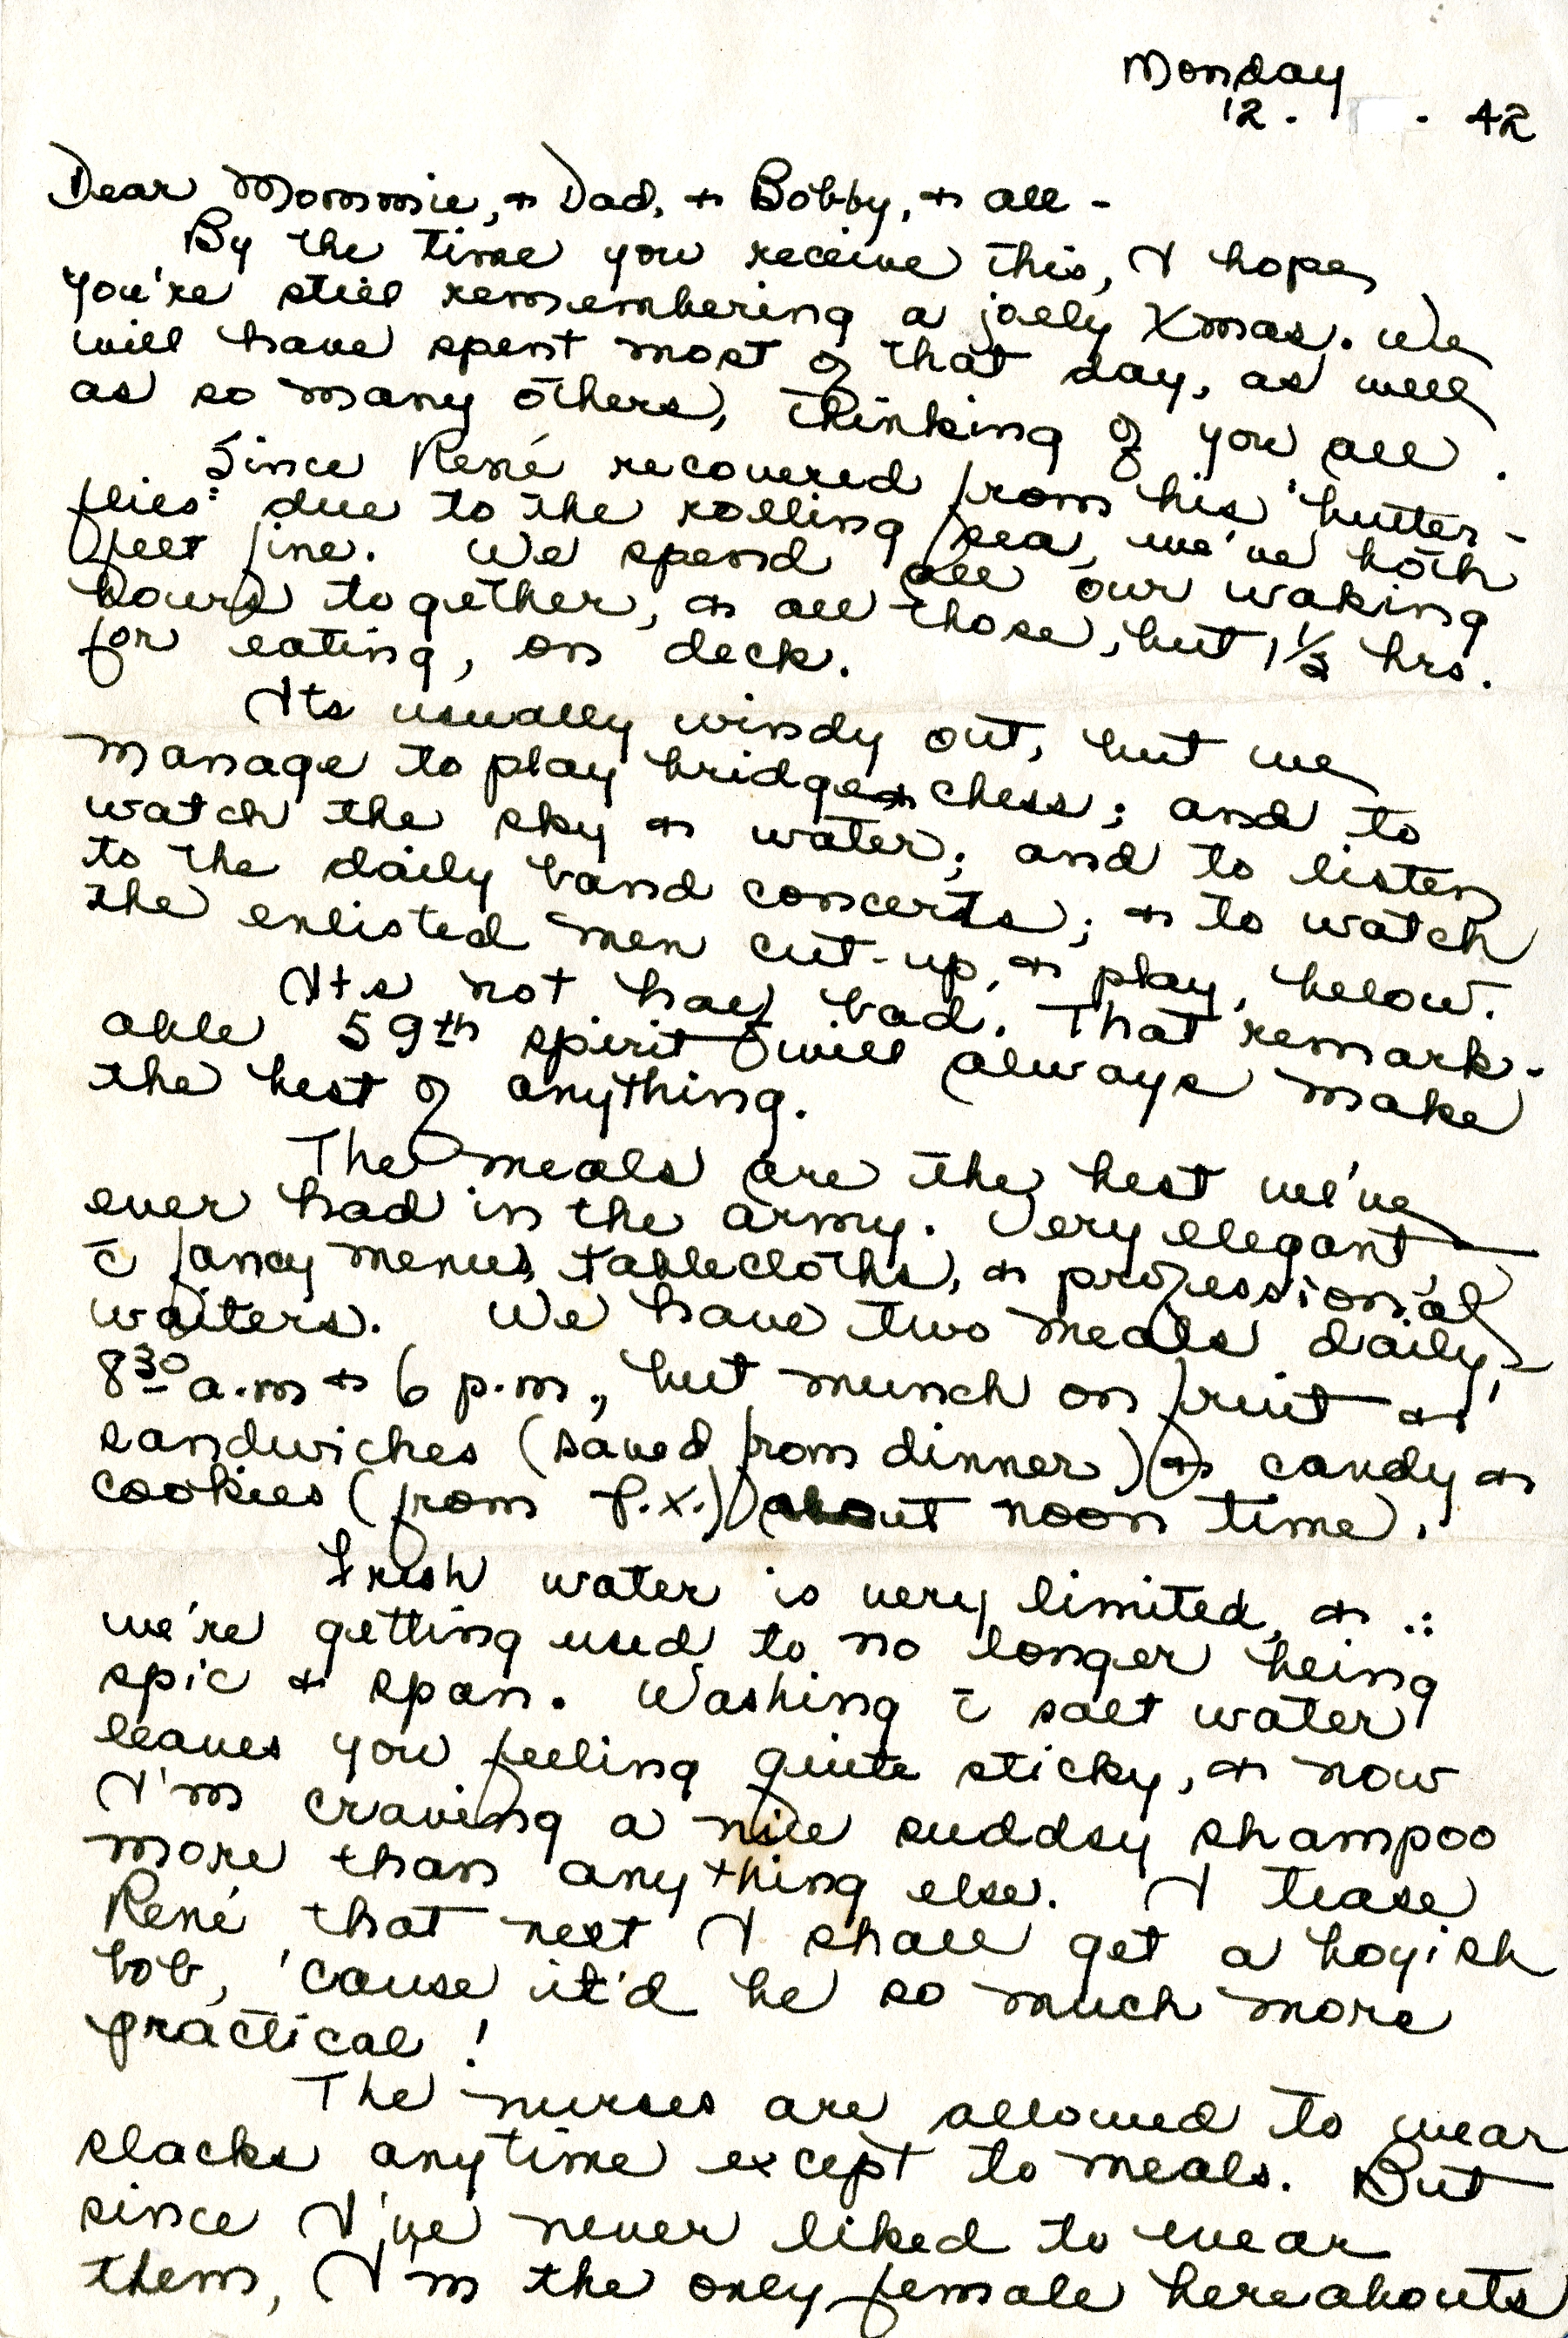 Monday
12. . 42
Dear Mommie, & Dad, & Bobby, & all -
By the time you receive this, I hope
you're still remembering a jolly Xmas. We
will have spent most of that day, as well
as so many others, thinking of you all.
Since René recovered from his "butter-
flies" due to the rolling sea, we've both
felt fine. We spend all our waking
hours together, & all those, but 1 1/2 hrs.
for eating, on deck.
Its usually windy out, but we
manage to play bridge & chess; and to
watch the sky & water; and to listen
to the daily band concerts; & to watch
the enlisted men cut-up, & play, below.
It's not half bad. That remark-
able 59th spirit will always make
the best of anything.
The meals are the best we've
ever had in the army. Very elegant -
c̄ fancy menus, tablecloths, & professional
waiters. We have two meals daily,
8 30 a.m & 6 p.m., but munch on fruit &
sandwiches (saved from dinner) & candy &
cookies (from P.X.) about noon time.
Fresh water is very limited, & ∴
we're getting used to no longer being
spic & span. Washing c̄ salt water
leaves you feeling quite sticky, & now
I'm craving a nice suddsy shampoo
more than anything else. I tease
René that next I shall get a boyish
bob, 'cause it'd be so much more
practical!
The nurses are allowed to wear
slacks anytime except to meals. But
since I've never liked to wear
them, I'm the only female hereabouts